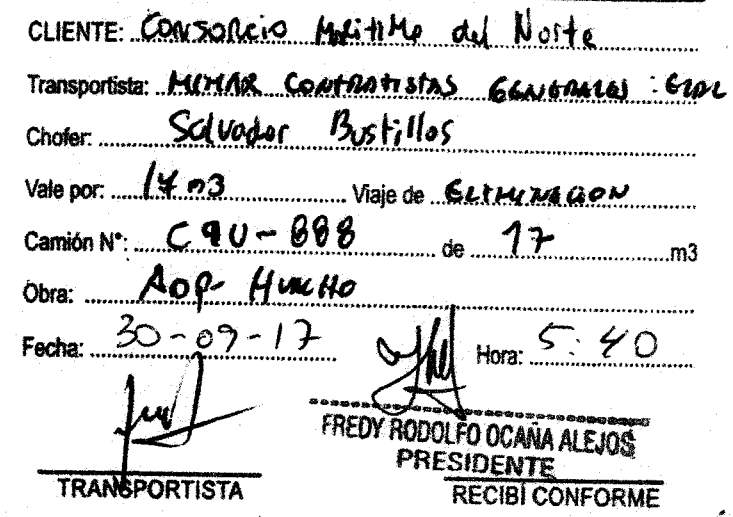 CLIENTE: Consorcio Maritimo del Norte
Transportista: MIMAR CONTRATISTAS GENERALES EIRL
Chofer: Salvador Bustillos
Vale por: 17 m3 Viaje de ELIMINACION
Camión N°: C9U-888 de 17 m3
Obra: AOP- HUACHO
Fecha: 30-09-17 Hora: 5:40
FREDY RODOLFO OCAÑA ALEJOS
PRESIDENTE
TRANSPORTISTA RECIBÍ CONFORME